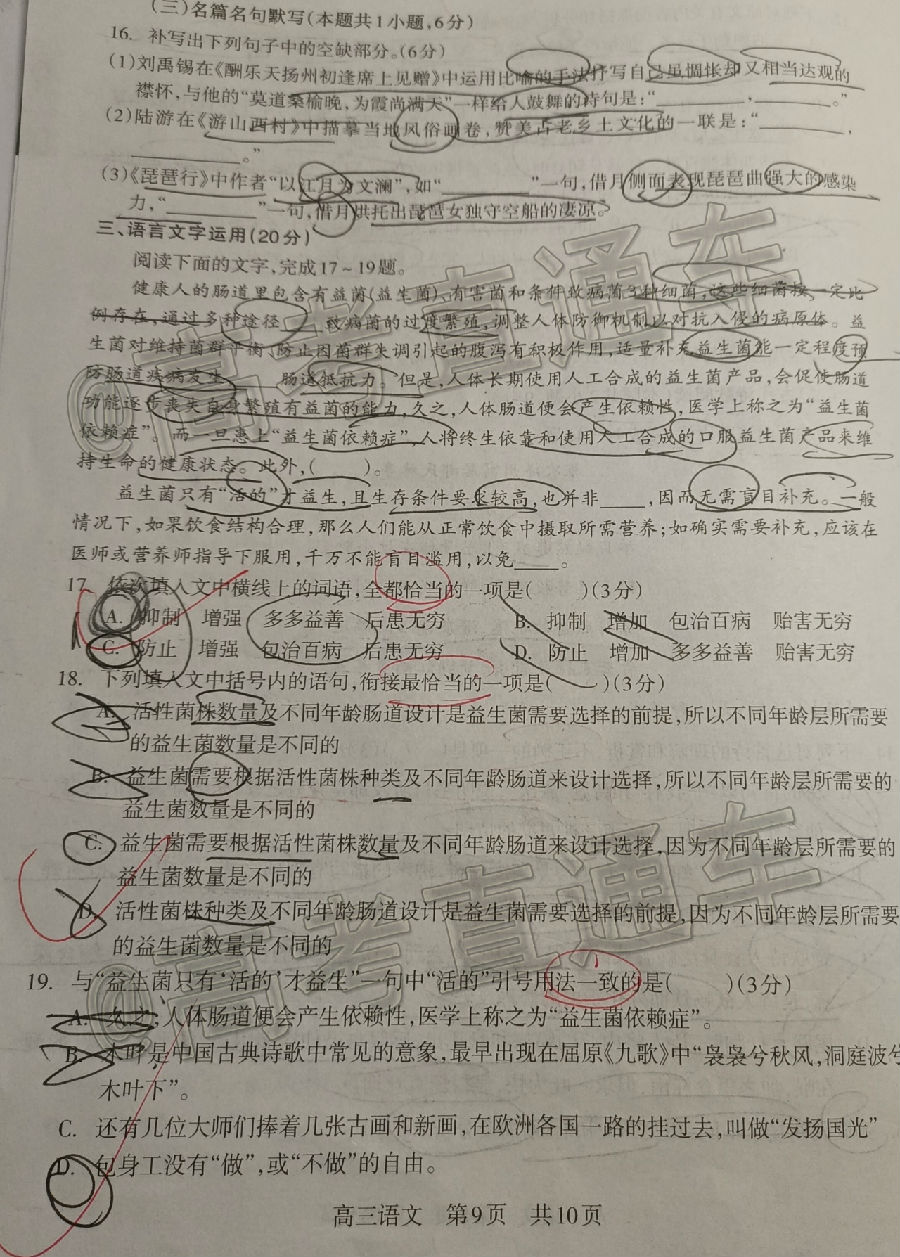 (三)名篇名句默写(本题共1小题,6分)
16. 补写出下列句子中的空缺部分。(6分)
(1)刘禹锡在《酬乐天扬州初逢席上见赠》中运用比喻的手法抒写自己虽惆怅却又相当达观的
襟怀,与他的“莫道桑榆晚、为霞尚满天”一样给人鼓舞的诗句是:“________,________。”
(2)陆游在《游山西村》中描摹当地风俗画卷,赞美古老乡土文化的一联是:“________,
________。”
(3)《琵琶行》中作者“以江月为文澜”,如“________”一句,借月侧面表现琵琶曲强大的感染
力,“________”一句,借月烘托出琵琶女独守空船的凄凉。
三、语言文字运用(20分)
阅读下面的文字,完成17~19题。
健康人的肠道里包含有益菌(益生菌)、有害菌和条件致病菌3种细菌,这些细菌按一定比
例存在,通过多种途径____致病菌的过度繁殖,调整人体防御机制以对抗入侵的病原体。益
生菌对维持菌群平衡、防止因菌群失调引起的腹泻有积极作用,适量补充益生菌能一定程度预
防肠道疾病发生____肠道抵抗力。但是,人体长期使用人工合成的益生菌产品,会促使肠道
功能逐步丧失自身繁殖有益菌的能力,久之,人体肠道便会产生依赖性,医学上称之为“益生菌
依赖症”。而一旦患上“益生菌依赖症”,人将终生依靠和使用人工合成的口服益生菌产品来维
持生命的健康状态。此外,( )。
益生菌只有“活的”才益生,且生存条件要求较高,也并非____,因而无需盲目补充。一般
情况下,如果饮食结构合理,那么人们能从正常饮食中摄取所需营养;如确实需要补充,应该在
医师或营养师指导下服用,千万不能盲目滥用,以免____。
17. 依次填入文中横线上的词语,全都恰当的一项是( )(3分)
A. 抑制 增强 多多益善 后患无穷 B. 抑制 增加 包治百病 贻害无穷
C. 防止 增强 包治百病 后患无穷 D. 防止 增加 多多益善 贻害无穷
18. 下列填入文中括号内的语句,衔接最恰当的一项是( )(3分)
A. 活性菌株数量及不同年龄肠道设计是益生菌需要选择的前提,所以不同年龄层所需要
的益生菌数量是不同的
B. 益生菌需要根据活性菌株种类及不同年龄肠道来设计选择,所以不同年龄层所需要的
益生菌数量是不同的
C. 益生菌需要根据活性菌株数量及不同年龄肠道来设计选择,因为不同年龄层所需要的
益生菌数量是不同的
D. 活性菌株种类及不同年龄肠道设计是益生菌需要选择的前提,因为不同年龄层所需要
的益生菌数量是不同的
19. 与“益生菌只有‘活的’才益生”一句中“活的”引号用法一致的是( )(3分)
A. 久之,人体肠道便会产生依赖性,医学上称之为“益生菌依赖症”。
B. 木叶是中国古典诗歌中常见的意象,最早出现在屈原《九歌》中“袅袅兮秋风,洞庭波兮
木叶下”。
C. 还有几位大师们捧着几张古画和新画,在欧洲各国一路的挂过去,叫做“发扬国光”
D. 包身工没有“做”,或“不做”的自由。
高三语文 第9页 共10页
@高考直通车
@高考直通车